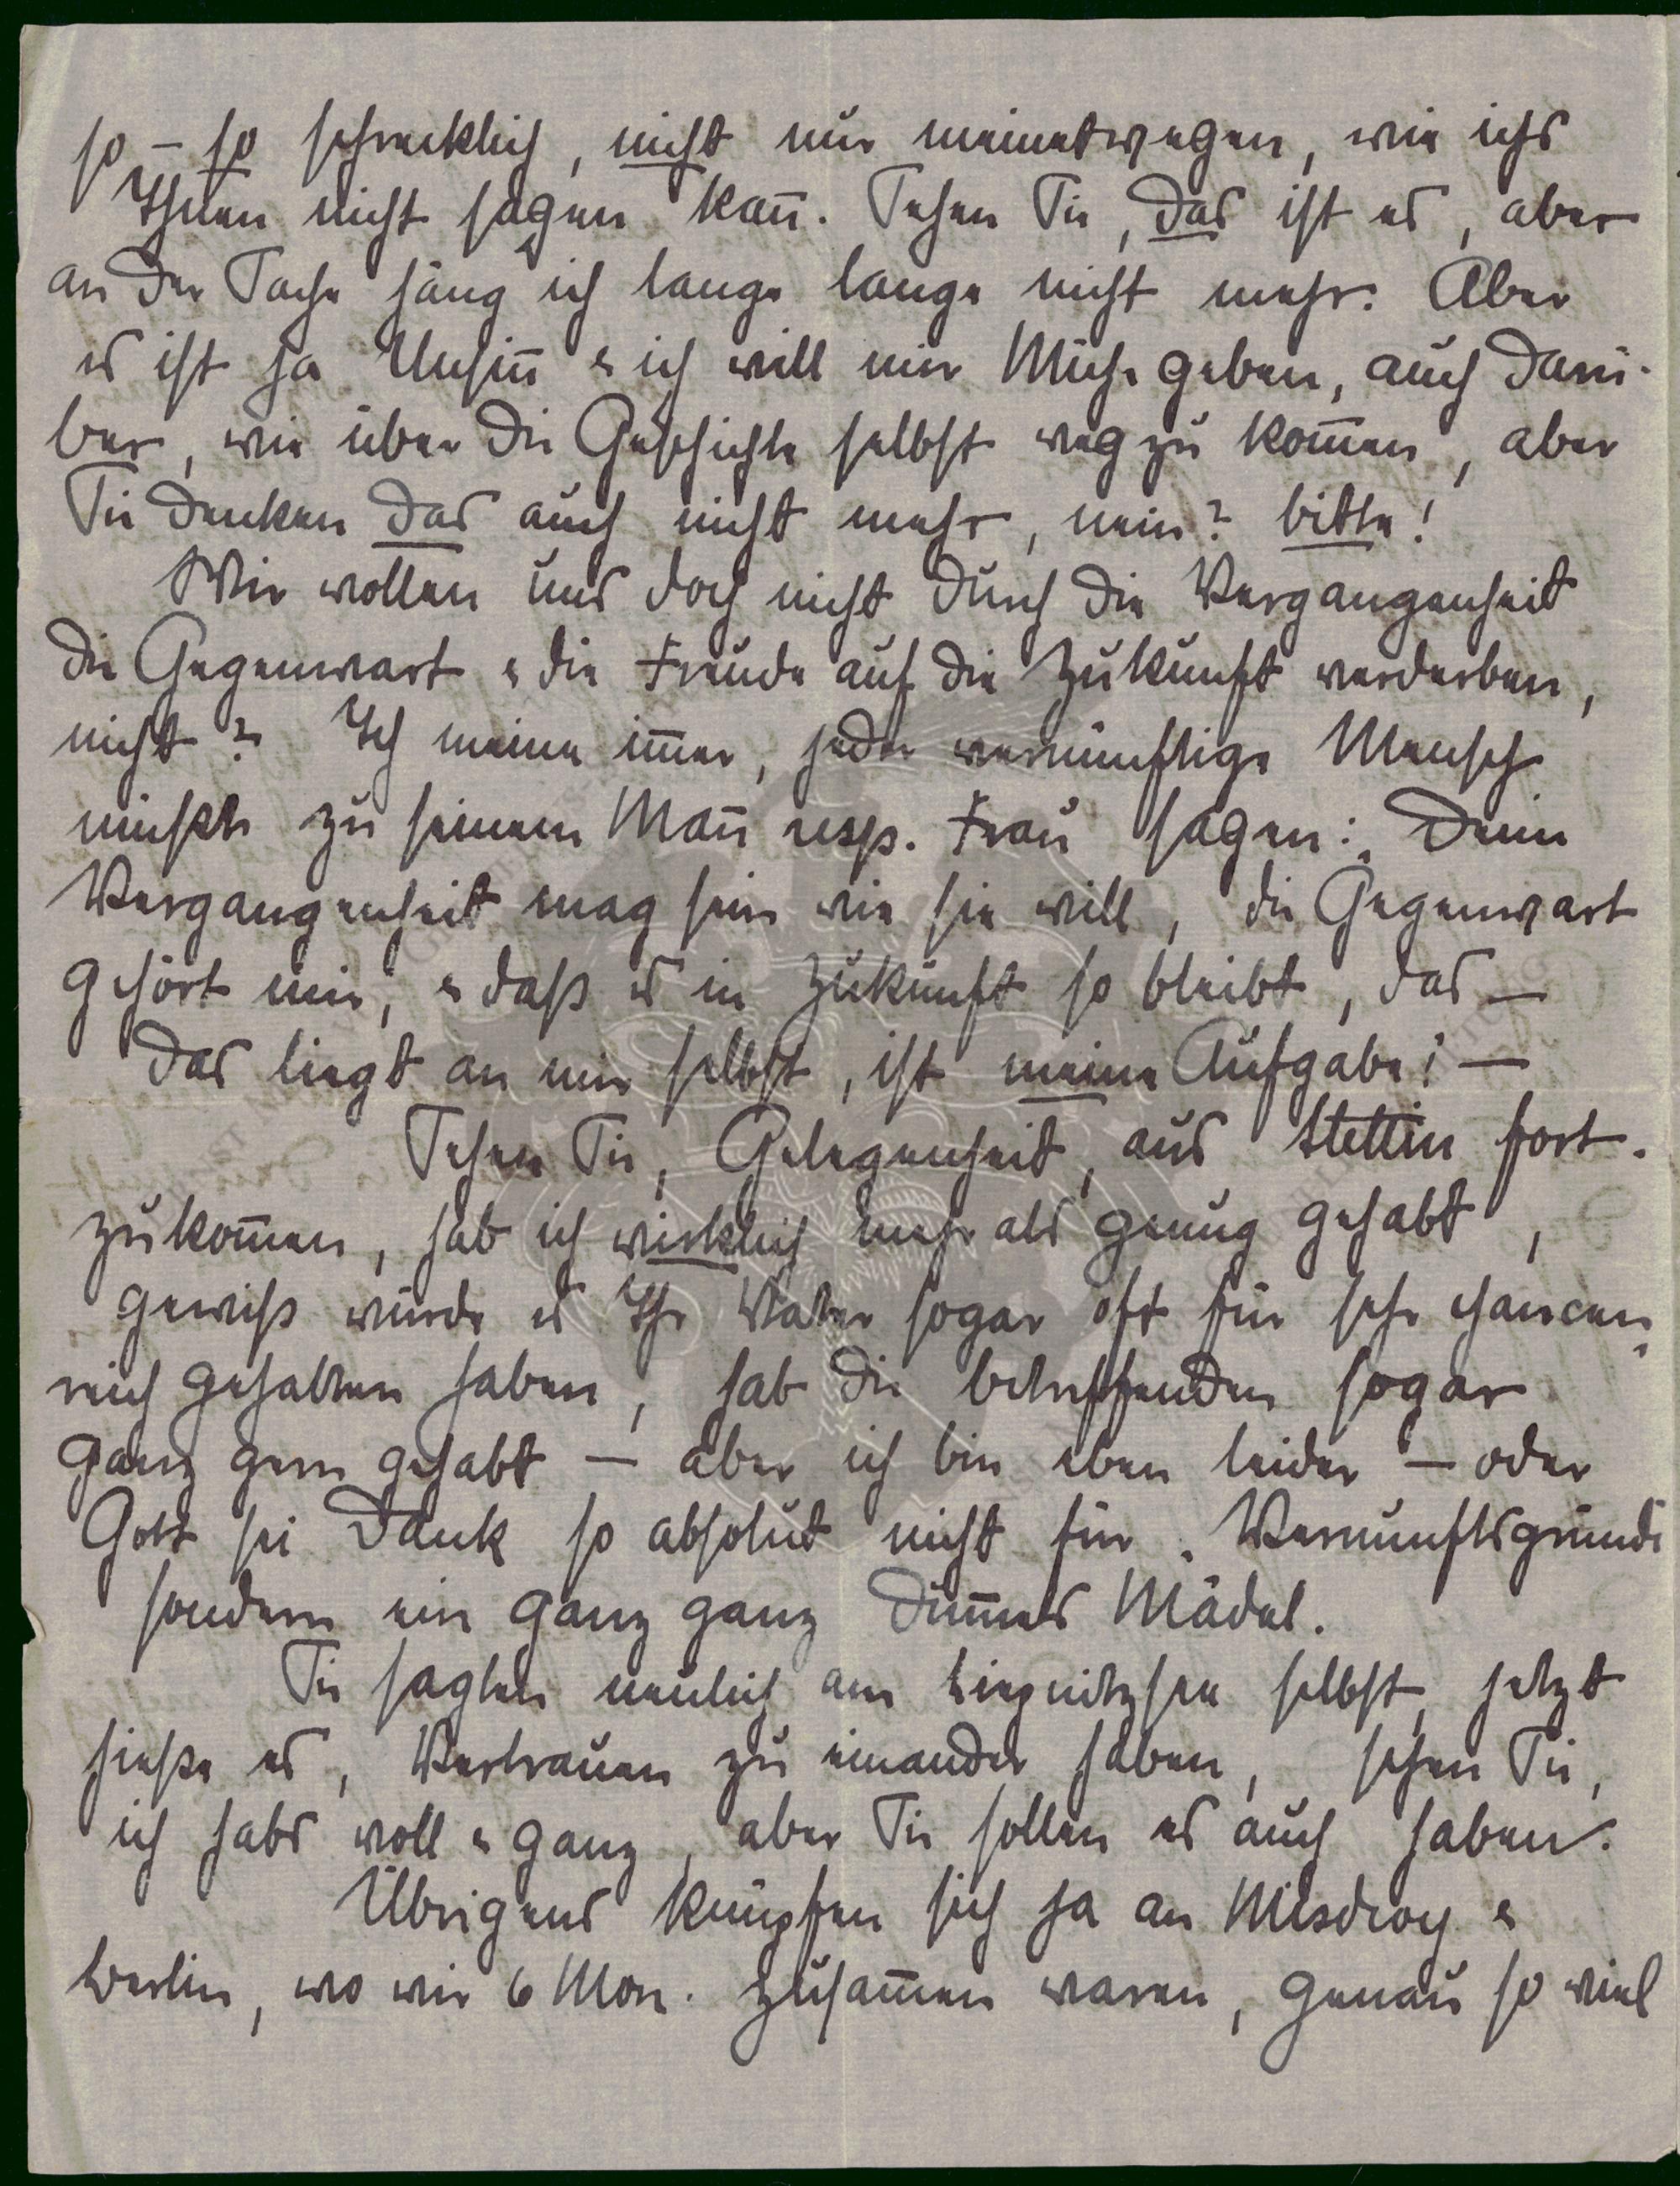 so – so schrecklich, nicht nur meinetwegen, wie ichs
Ihnen nicht sagen kan̄. Sehen Sie, das ist es, aber
an der Sache häng ich lange lange nicht mehr. Aber
es ist ja Unsin̄ & ich will mir Mühe geben, auch darü-
ber, wie über die Geschichte selbst weg zu kom̄en, aber
Sie denken das auch nicht mehr, nein? bitte!
Wir wollen uns doch nicht durch die Vergangenheit
die Gegenwart & die Freude auf die Zukunft verderben,
nicht? Ich meine im̄er, jeder vernünftige Mensch
müßte zu seinem Man̄ resp. Frau sagen: „Deine
Vergangenheit mag sein wie sie will, die Gegenwart
gehört mir, & daß es in Zukunft so bleibt, das –
das liegt an mir selbst, ist meine Aufgabe! –
Sehen Sie, Gelegenheit, aus Stettin fort-
zukom̄en, hab ich wirklich mehr als genug gehabt,
gewiß würde es Ihr Vater sogar oft für sehr chancen
reich gehalten haben, hab die betreffenden sogar
ganz gern gehabt – aber ich bin eben leider – oder
Gott sei Dank so absolut nicht für „Vernunftsgründe
sondern ein ganz ganz dum̄es Mädel.
Sie sagten neulich am Liepnitzsee selbst, jetzt
hieße es, Vertrauen zu einander haben, sehen Sie,
ich habs voll & ganz, aber Sie sollen es auch haben.
Übrigens knüpfen sich ja an Misdroy &
Berlin, wo wir 6 Mon. zusam̄en waren, genau so viel